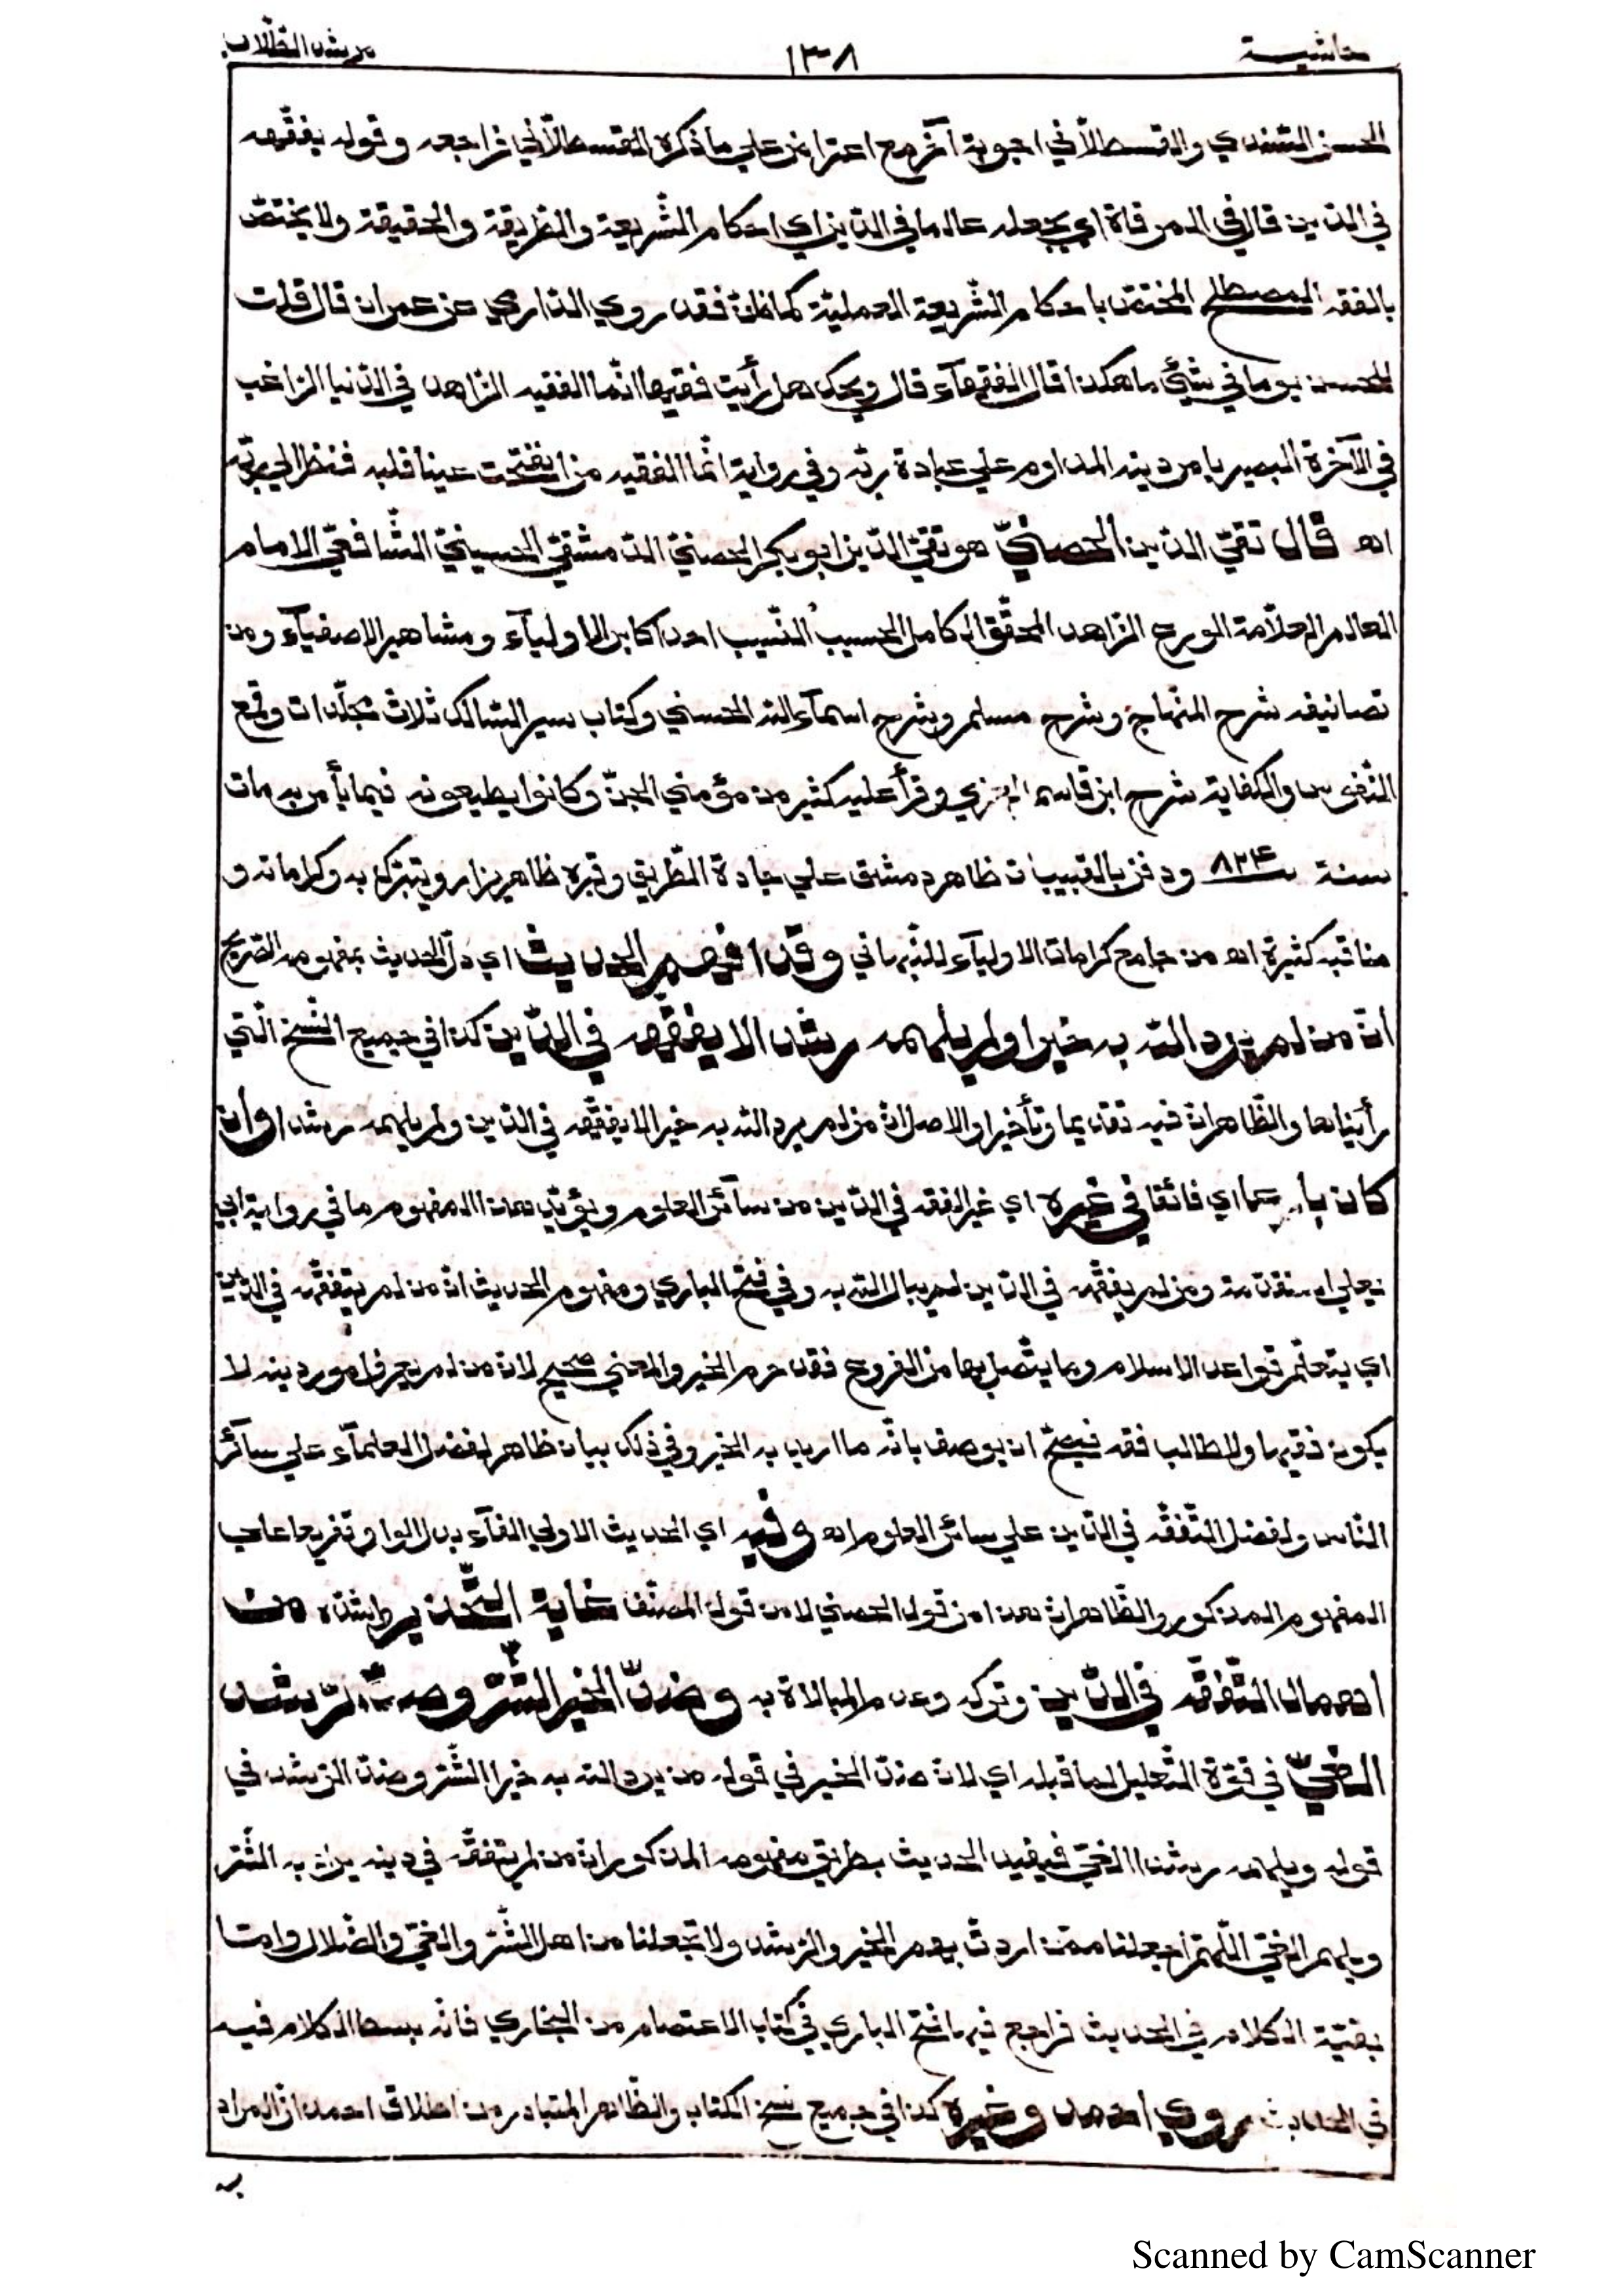 حاشية ١٣٨ مرشد الطلاب
الحسن السّندي والقسطلاّني اجوبة آخر مع اعتراض علي ما ذكره القسطلاّني فراجعه وقوله يفقّهه
في الدّين قال في المرقاة اي يجعله عالما في الدّين اي احكام الشّريعة والطّريقة والحقيقة ولا يختصّ
بالفقه المصطلح المختصّ باحكام الشّريعة العمليّة كما ظنّ فقد روي الدّارمي عن عمران قال قلت
للحسن يوما في شيئ ما هكذا قال الفقهآء قال ويحك هل رأيت فقيها انّما الفقيه الزّاهد في الدّنيا الرّاغب
في الآخرة البصير بامر دينه المداوم علي عبادة ربّه وفي رواية انّما الفقيه من انفتحت عينا قلبه فنظر الي ربّه
اهـ قال تقيّ الدّين الحصنيّ هو تقيّ الدّين ابو بكر الحصنيّ الدّمشقيّ الحسينيّ الشّافعيّ الامام
العالم العلاّمة الورع الزّاهد المحقّق الكامل الحسيب النّسيب احد اكابر الاوليآء ومشاهير الاصفيآء ومن
تصانيفه شرح المنهاج وشرح مسلم وشرح اسمآء الله الحسني وكتاب سير السّالك ثلاث مجلّدات وقمع
النّفوس والكفاية شرح ابن قاسم الغزي وقرأ عليه كثير من مؤمني الجنّ وكانوا يطيعونه فيما يأمر به مات
سنة ٨٢٤ ودفن بالقبيبات ظاهر دمشق علي جادة الطّريق وقبره ظاهر يزار ويتبرّك به وكراماته و
مناقبه كثيرة اهـ من جامع كرامات الاوليآء للنّبهاني وقد افهم الحديث اي دلّ الحديث بمفهومه الصّريح
انّ من لم يرد الله به خيرا ولم يلهمه رشدا لا يفقّهه في الدّين كذا في جميع النّسخ الّتي
رأيناها والظّاهر انّ فيه تقديما وتأخيرا والاصل انّ من لم يرد الله به خيرا لا يفقّهه في الدّين ولم يلهمه رشدا وان
كان بارعا اي فائقا في غيره اي غير الفقه في الدّين من سآئر العلوم ويؤيّد هذا المفهوم ما في رواية ابي
يعلي المتقدّمة ومن لم يفقّهه في الدّين لم يبال الله به وفي فتح الباري ومفهوم الحديث انّ من لم يتفقّه في الدّين
اي يتعلّم قواعد الاسلام وما يتّصل بها من الفروع فقد حرم الخير والمعني صحيح لانّ من لم يعرف امور دينه لا
يكون فقيها ولا طالب فقه فيصحّ ان يوصف بانّه ما اريد به الخير وفي ذلك بيان ظاهر لفضل العلمآء علي سآئر
النّاس ولفضل التّفقّه في الدّين علي سائر العلوم اهـ وفيه اي الحديث الاولي الفآء بدل الواو تفريعا علي
المفهوم المذكور والظّاهر انّ هذا من قول الحصني لا من قول المصنّف غاية التّحذير واشدّه من
اهمال التّفقّه في الدّين وتركه وعدم المبالاة به وضدّ الخير الشّرّ وضدّ الرّشد
الغيّ في قوّة التّعليل لما قبله اي لانّ ضدّ الخير في قوله من يرد الله به خيرا الشّرّ وضدّ الرّشد في
قوله ويلهمه رشدا الغيّ فيفيد الحديث بطريق مفهومه المذكور انّ من لم يتفقّه في دينه يراد به الشّرّ
ويلهم الغيّ اللّهمّ اجعلنا ممّن اردت بهم الخير والرّشد ولا تجعلنا من اهل الشّرّ والغيّ والضّلال وامّا
بقيّة الكلام في الحديث فراجع فيها فتح الباري في كتاب الاعتصام من البخاري فانّه بسط الكلام فيه
في الحديث روي احمد وغيره كذا في جميع نسخ الكتاب والظّاهر المتبادر من اطلاق احمد انّ المراد
به
Scanned by CamScanner